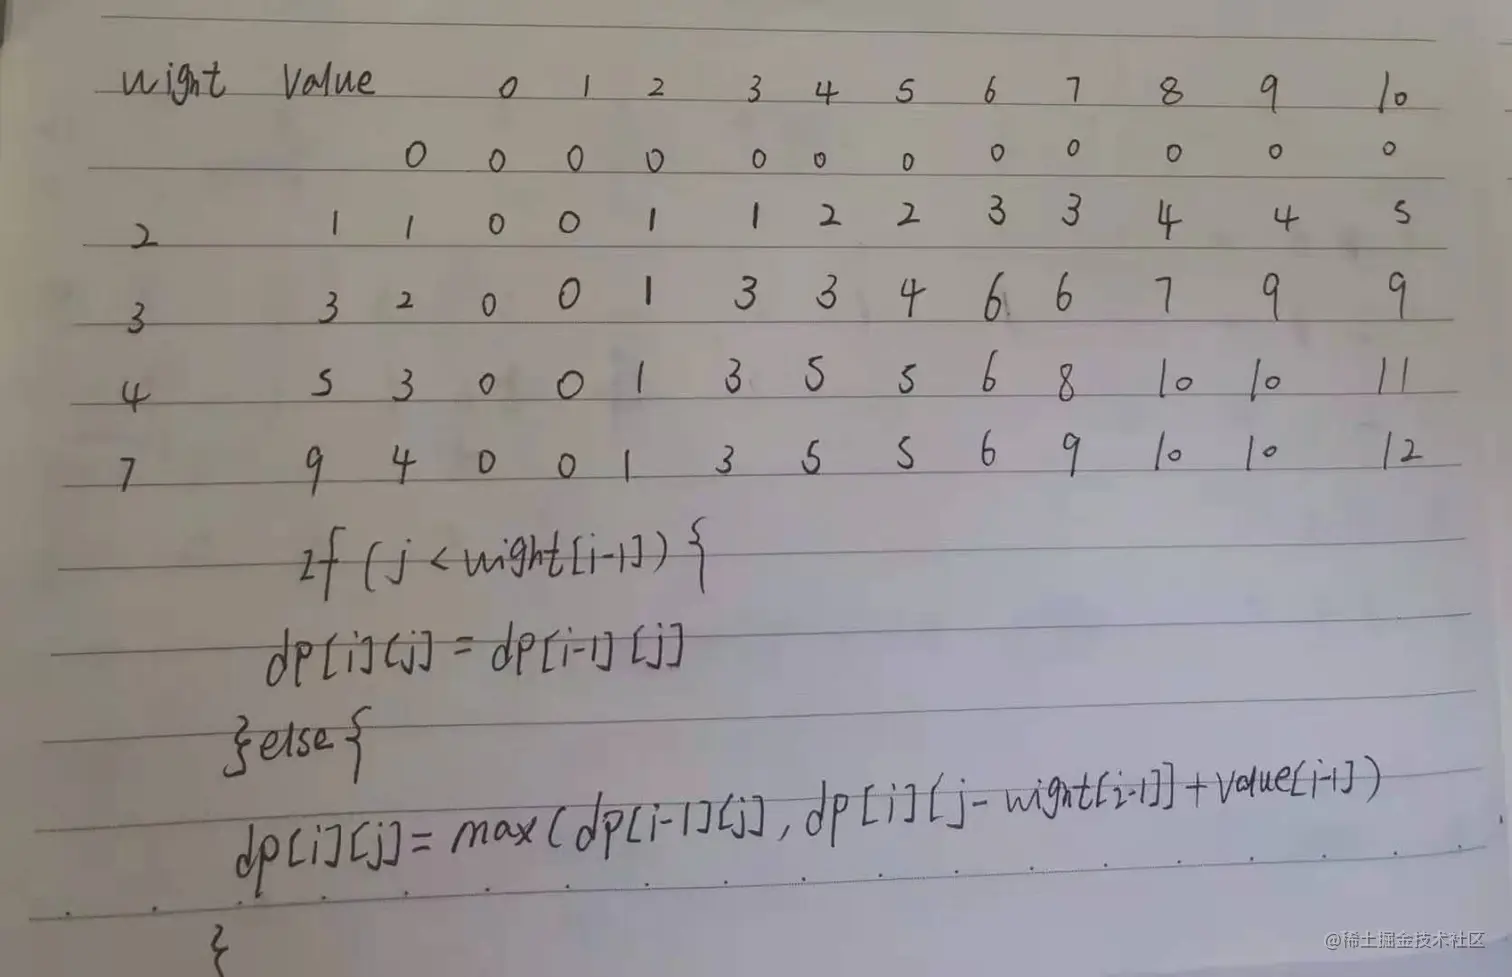 wight value 0 1 2 3 4 5 6 7 8 9 10
0 0 0 0 0 0 0 0 0 0 0 0
2 1 1 0 0 1 1 2 2 3 3 4 4 5
3 3 2 0 0 1 3 3 4 6 6 7 9 9
4 5 3 0 0 1 3 5 5 6 8 10 10 11
7 9 4 0 0 1 3 5 5 6 9 10 10 12
if (j < wight[i-1]) {
dp[i][j] = dp[i-1][j]
}else{
dp[i][j] = max(dp[i-1][j], dp[i][j-wight[i-1]]+value[i-1])
}
@稀土掘金技术社区